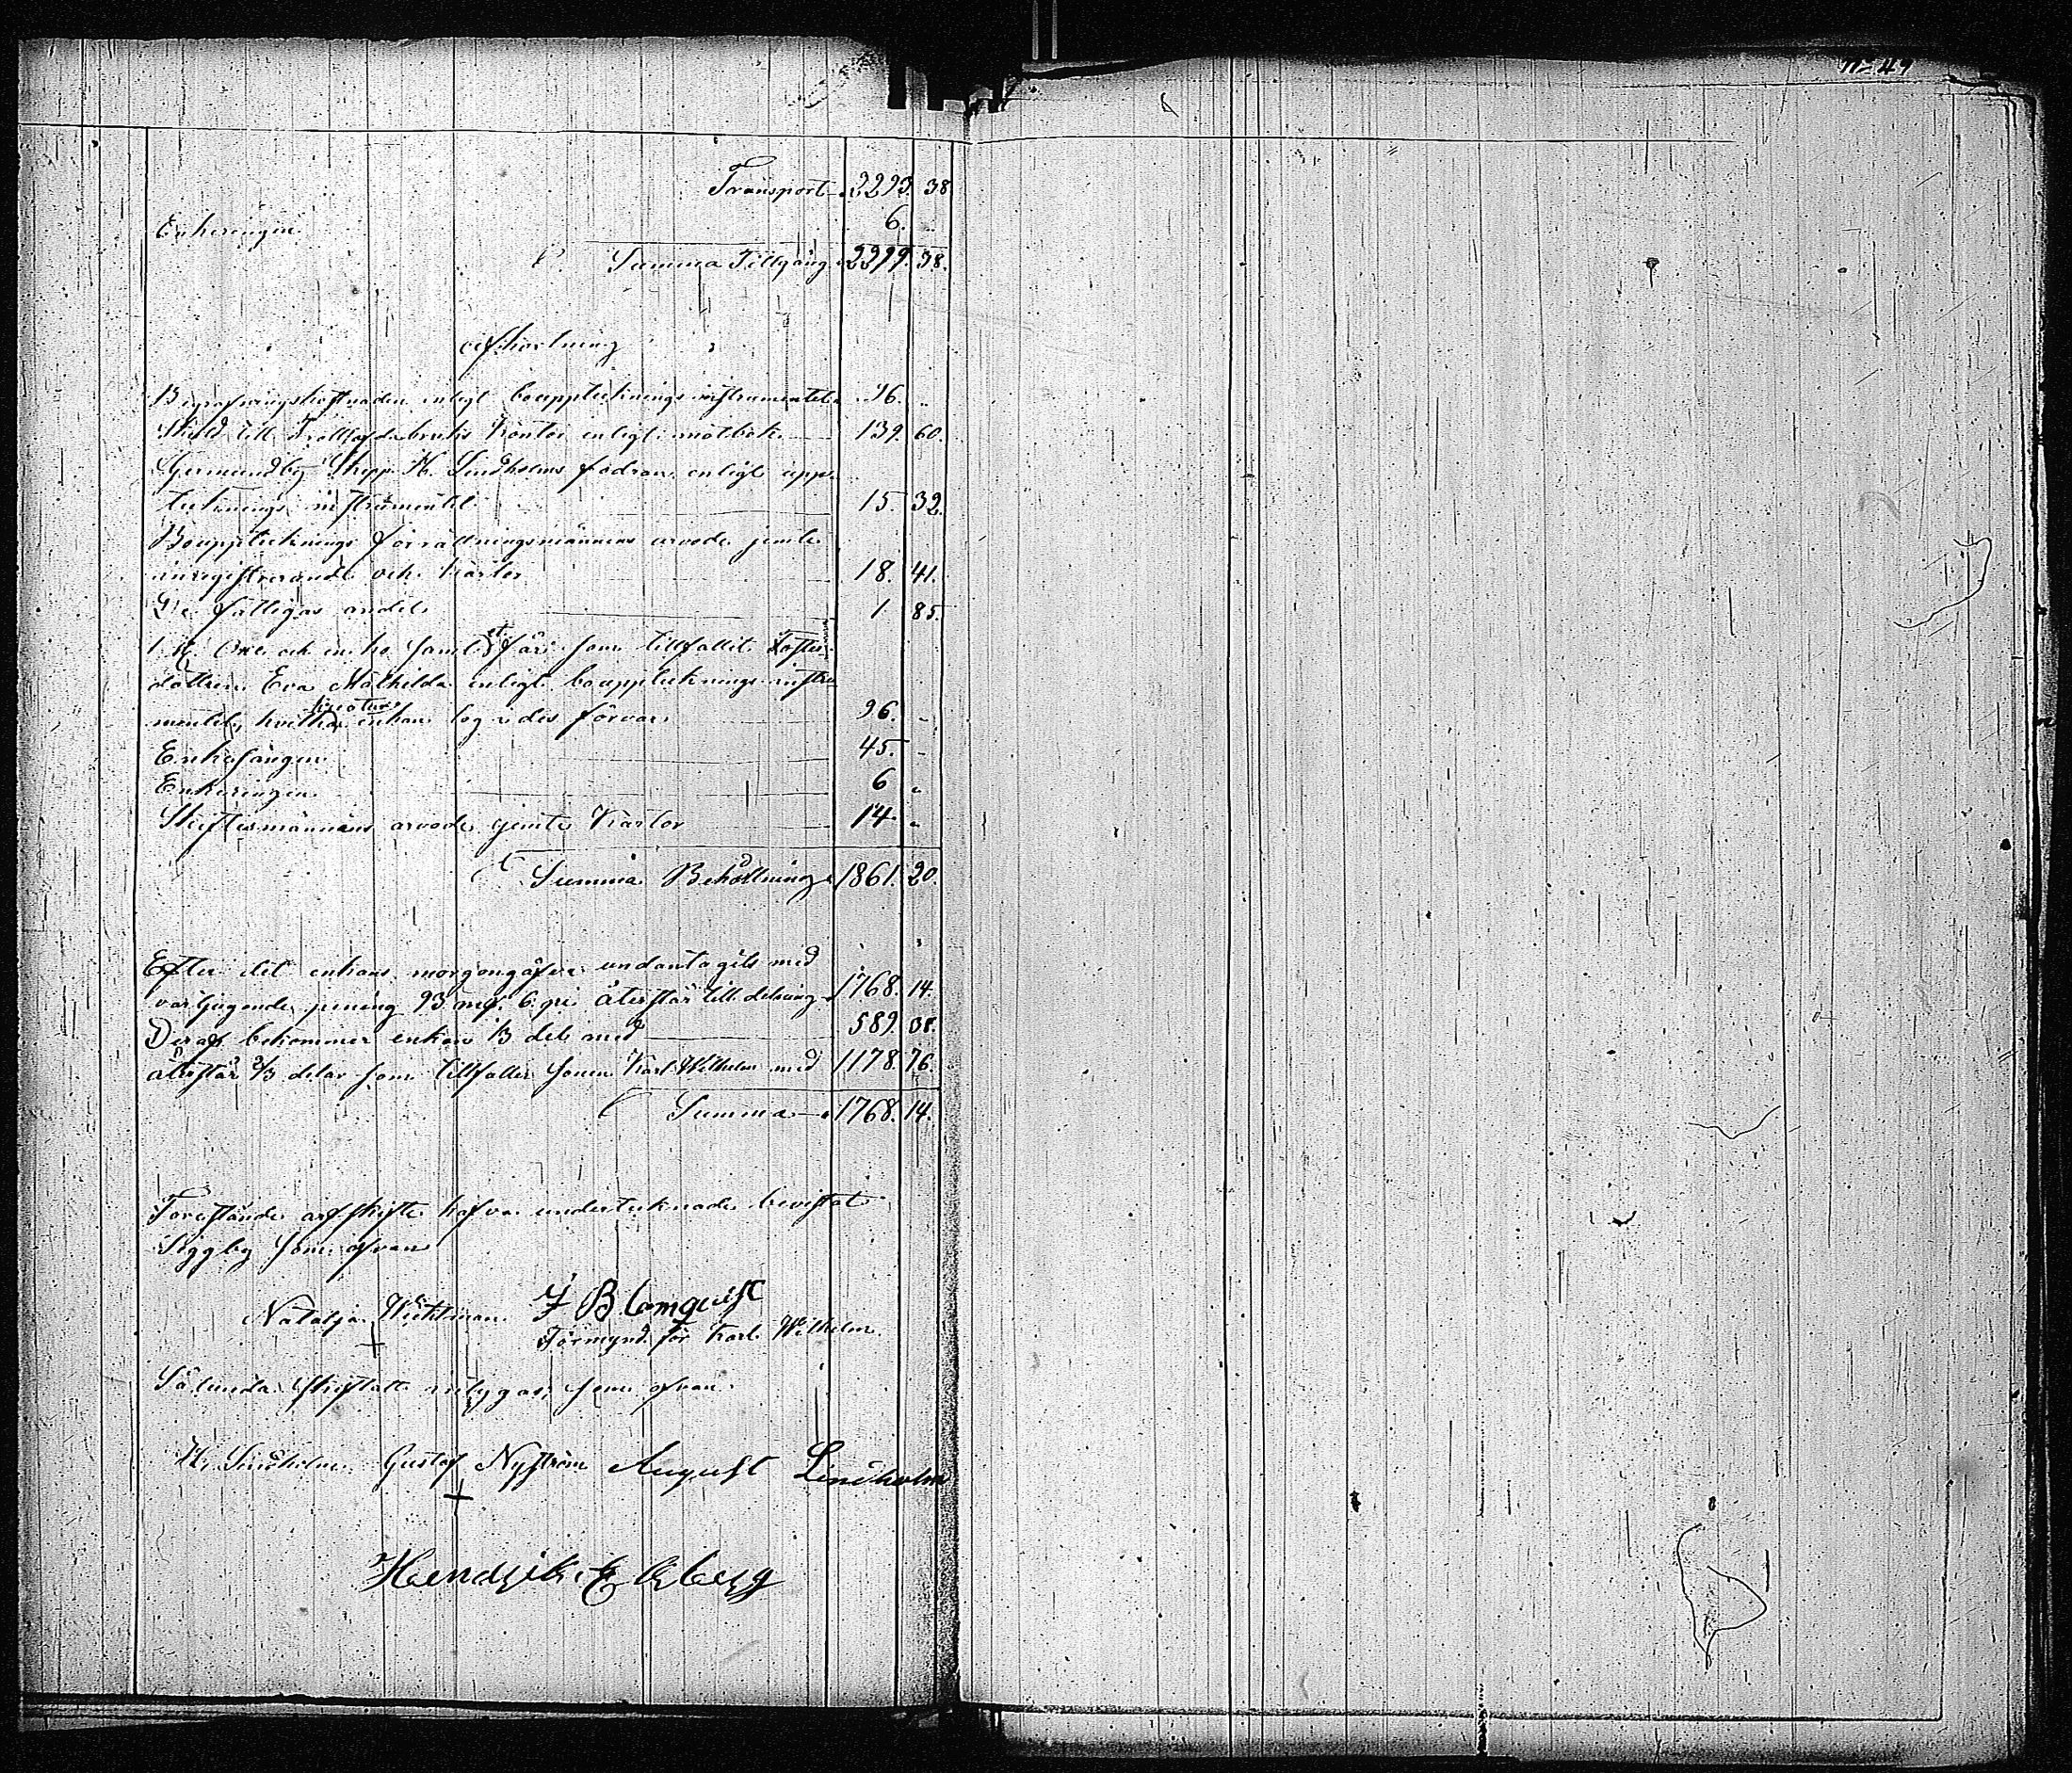 Transport 2293. 38
Enkeringen 6. „
Summa Tillgång 2299. 38.
Afkortning
Begrafningskostnaden enligt bouppteknings instrumentet 96. „
Skuld till Trollshofda bruks Kontor enligt motbok 139. 60.
Germundby Skepp. H. Lindholms fodran enligt upp-
tecknings instrumentet 15. 32.
Bouppteknings förrättningsmännens arvode jemte
inregistrerande och Kartor 18. 41.
De fattigas andel 1. 85.
1 st Oxe och en ko samt et får som tillfallit Foster-
dottren Eva Mathilda enligt bouppteknings instru-
mentet, hvilka kreatur enkan tog i des förvar 96. -
Enkosängen 45. -
Enkeringen 6 „
Skiftesmännens arvode jemte Kartor 14. „
Summa Behållning 1861. 20.
Efter det enkans morgongåfva undantagits med
vartjugonde pening 93 mk. 6 pi återstår till delning 1768. 14.
Deraf bekommer enkan 1/3 del med 589. 38.
återstår 2/3 delar som tillfaller sonen Karl Wilhelm med 1178. 76.
Summa 1768. 14.
Forestående arfskifte hafva undertecknade bevistat
Siggby som ofvan
Natalja Wickman J Blomqvist
+ Förmynd. för Karl Wilhelm
Sålunda skiftatt intygas; som ofvan
H. Lindholm Gustaf Nyström August Lindholm
+
Hendrik Ekberg